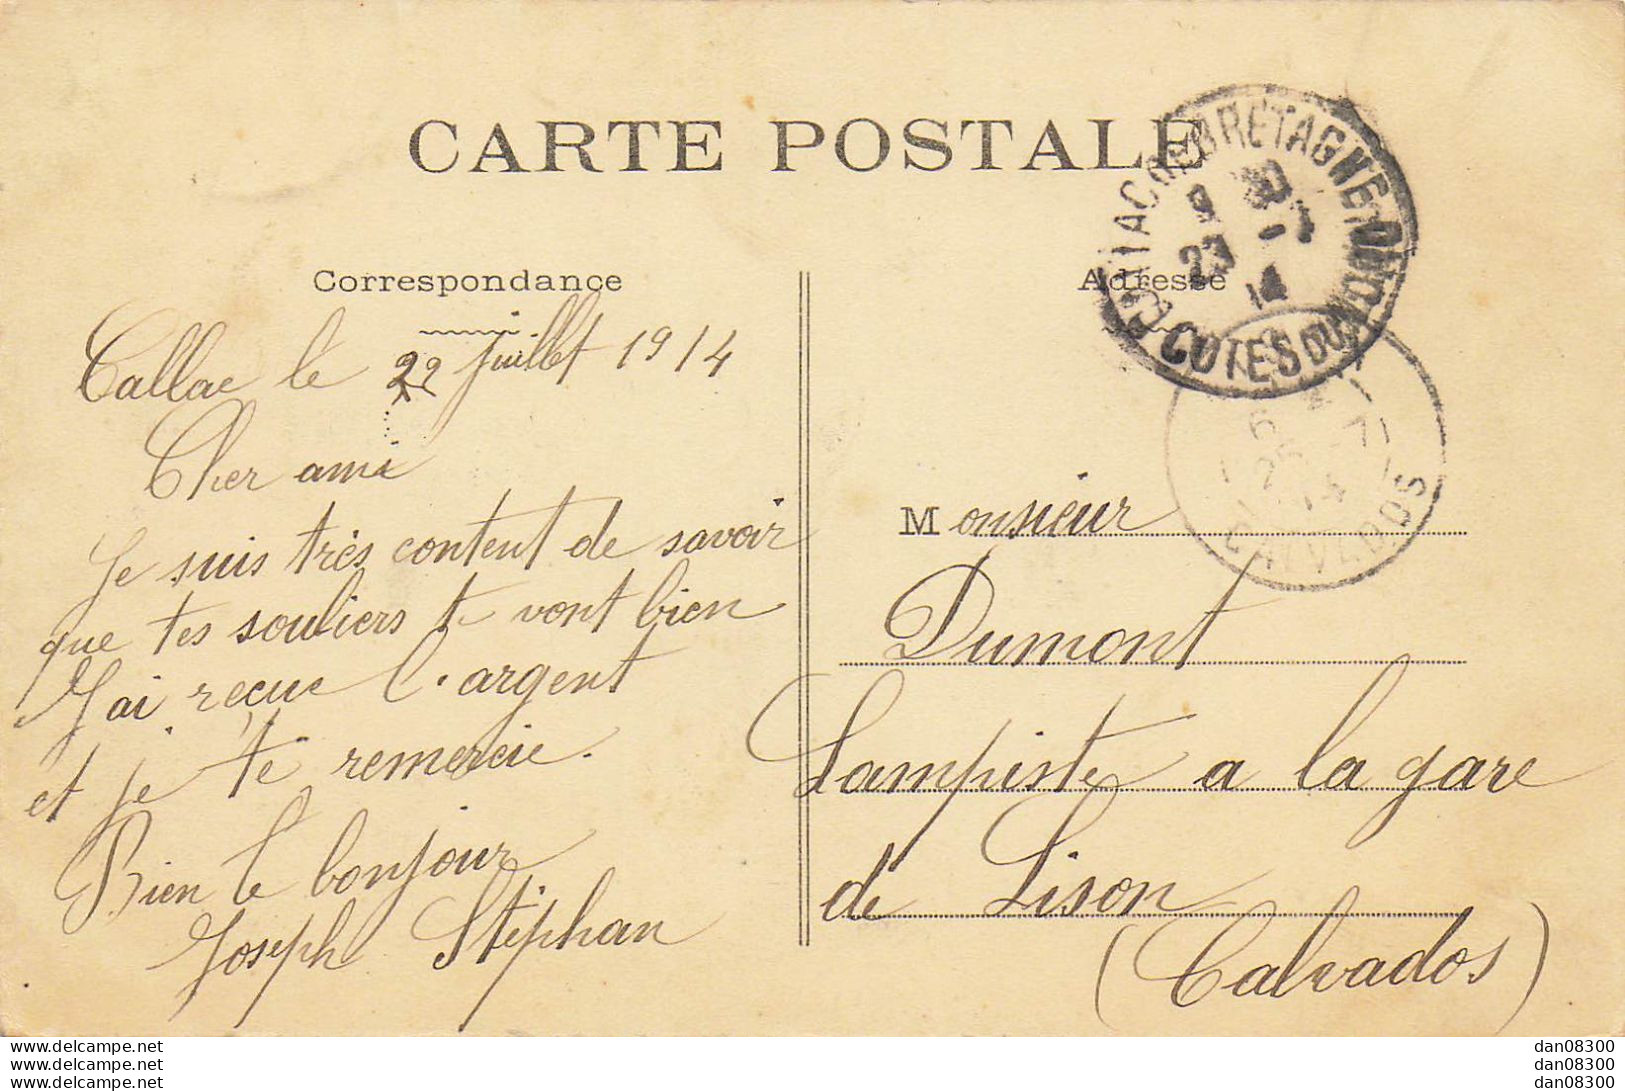 CARTE POSTALE
Correspondance
Adresse
Callac le 22 juillet 1914
Cher ami
Je suis très content de savoir
que tes souliers te vont bien
J'ai reçue l'argent
et je te remercie.
Bien le bonjour
Joseph Stéphan
Monsieur
Dumont
Lampiste a la gare
de Lison
(Calvados)
CALLAC DE BRETAGNE
9 30
23 - 7
14
COTES DU NORD
25 7
14
CALVADOS
www.delcampe.net
www.delcampe.net
www.delcampe.net
dan08300
dan08300
dan08300